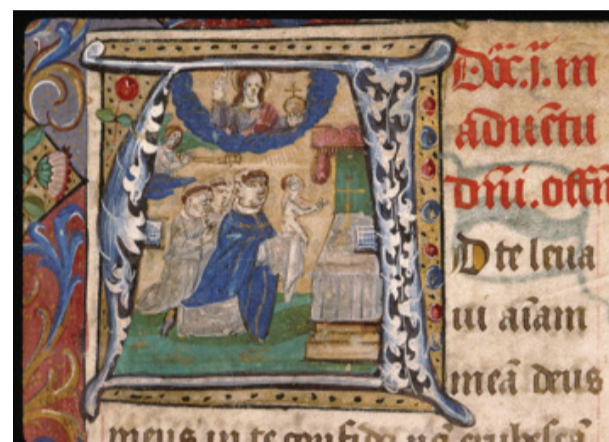 Dōc.j. in
aduētu
dn̄i. offm̄
D te leua
ui aīam
meā deus
meus in te confido nō erubescā